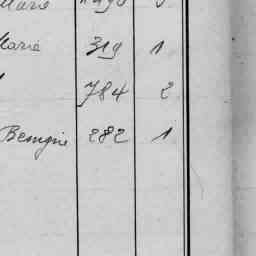 Marie
Marie 319 1
784 2
Benigne 282 1